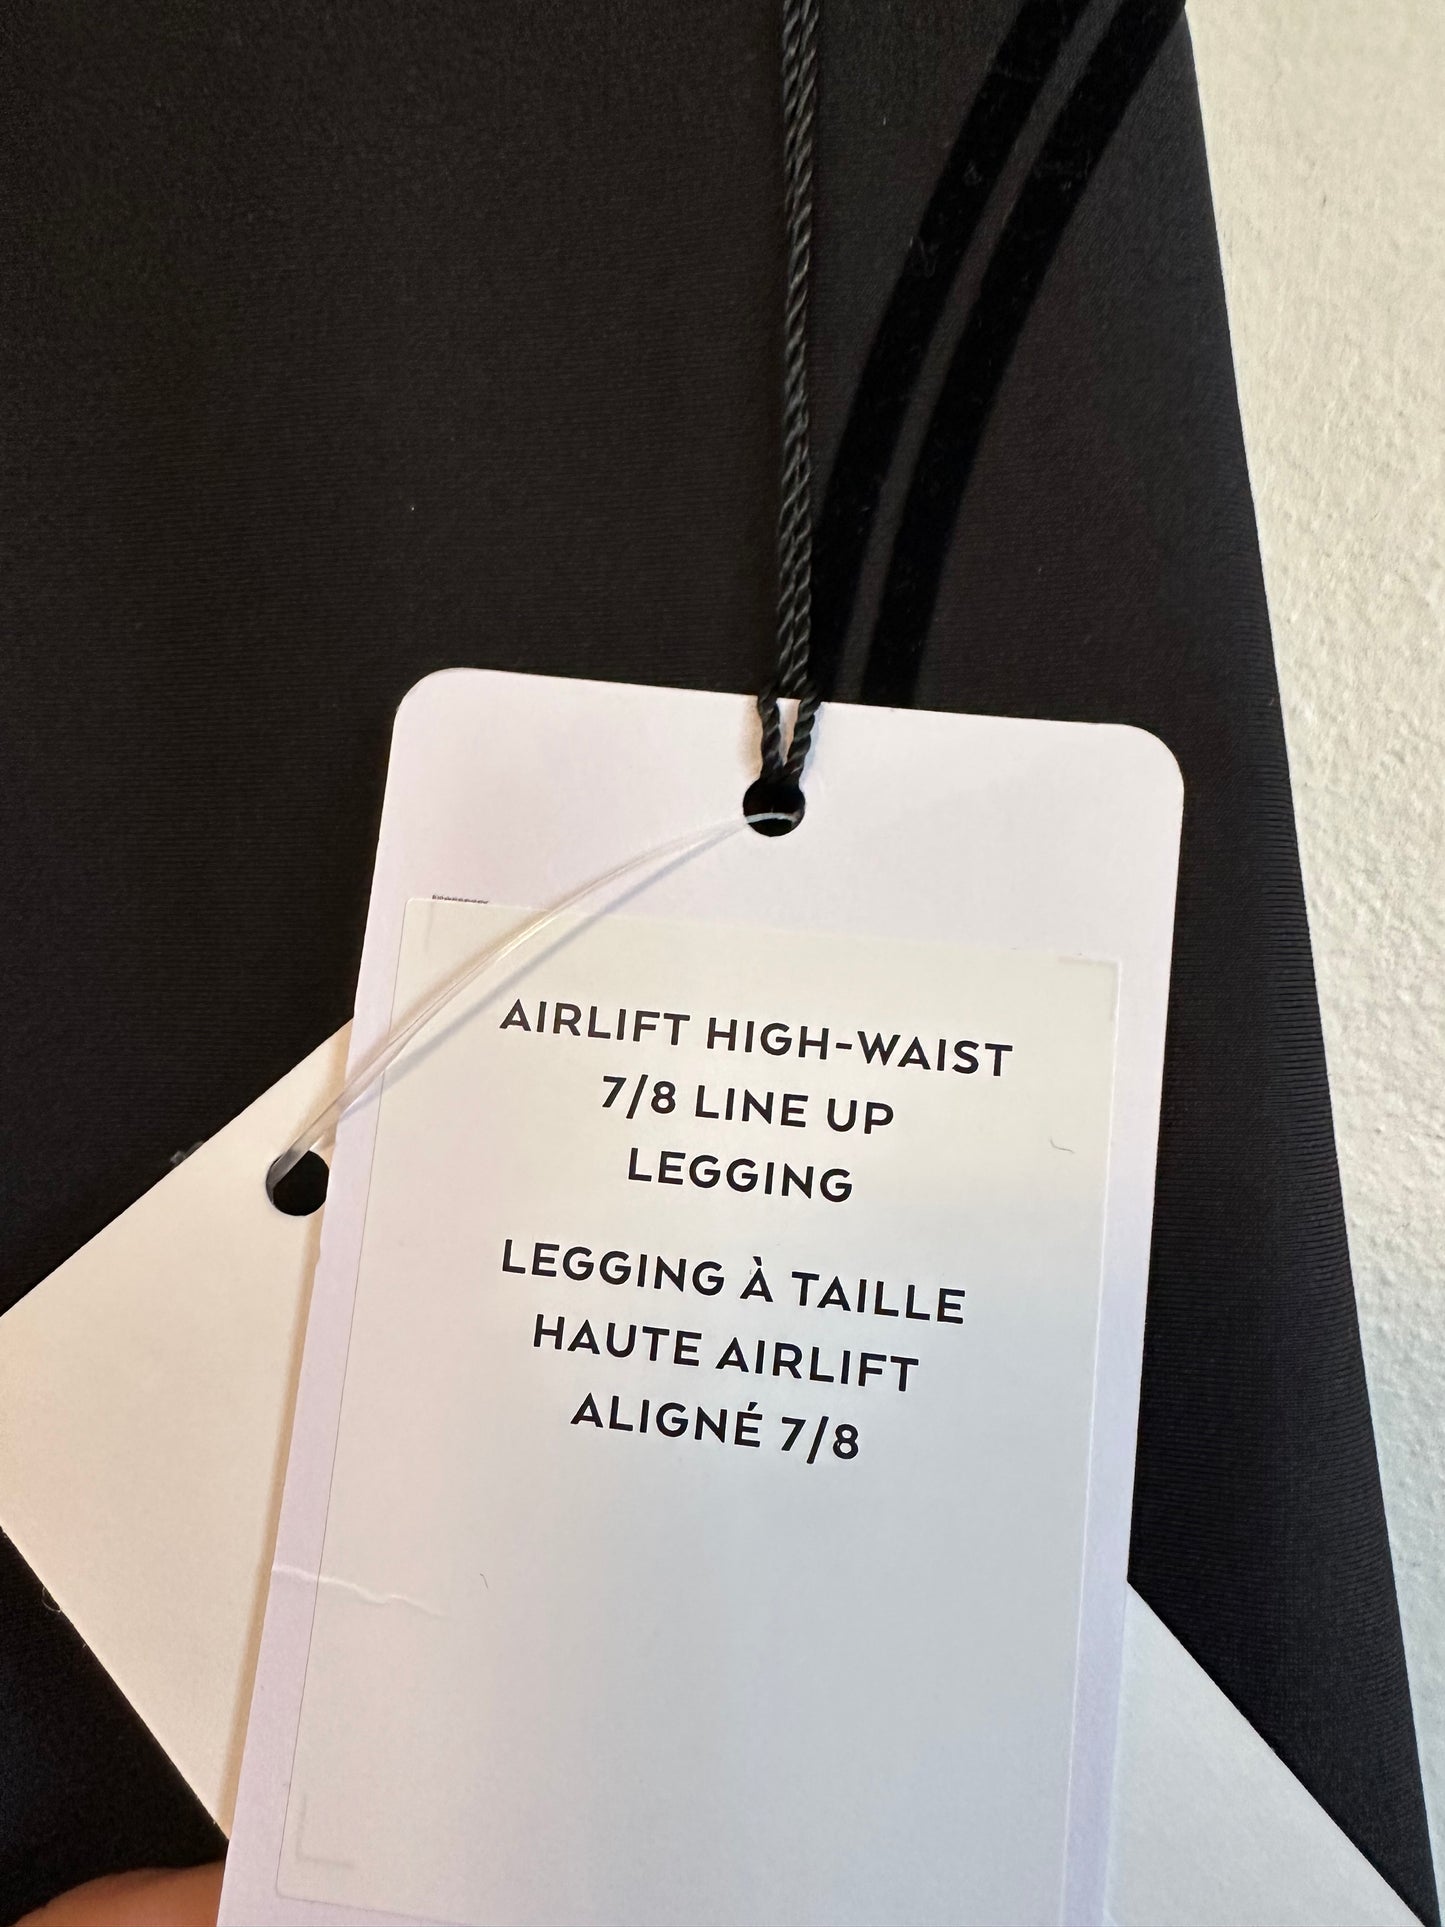 AIRLIFT HIGH-WAIST
7/8 LINE UP
LEGGING
LEGGING À TAILLE
HAUTE AIRLIFT
ALIGNÉ 7/8